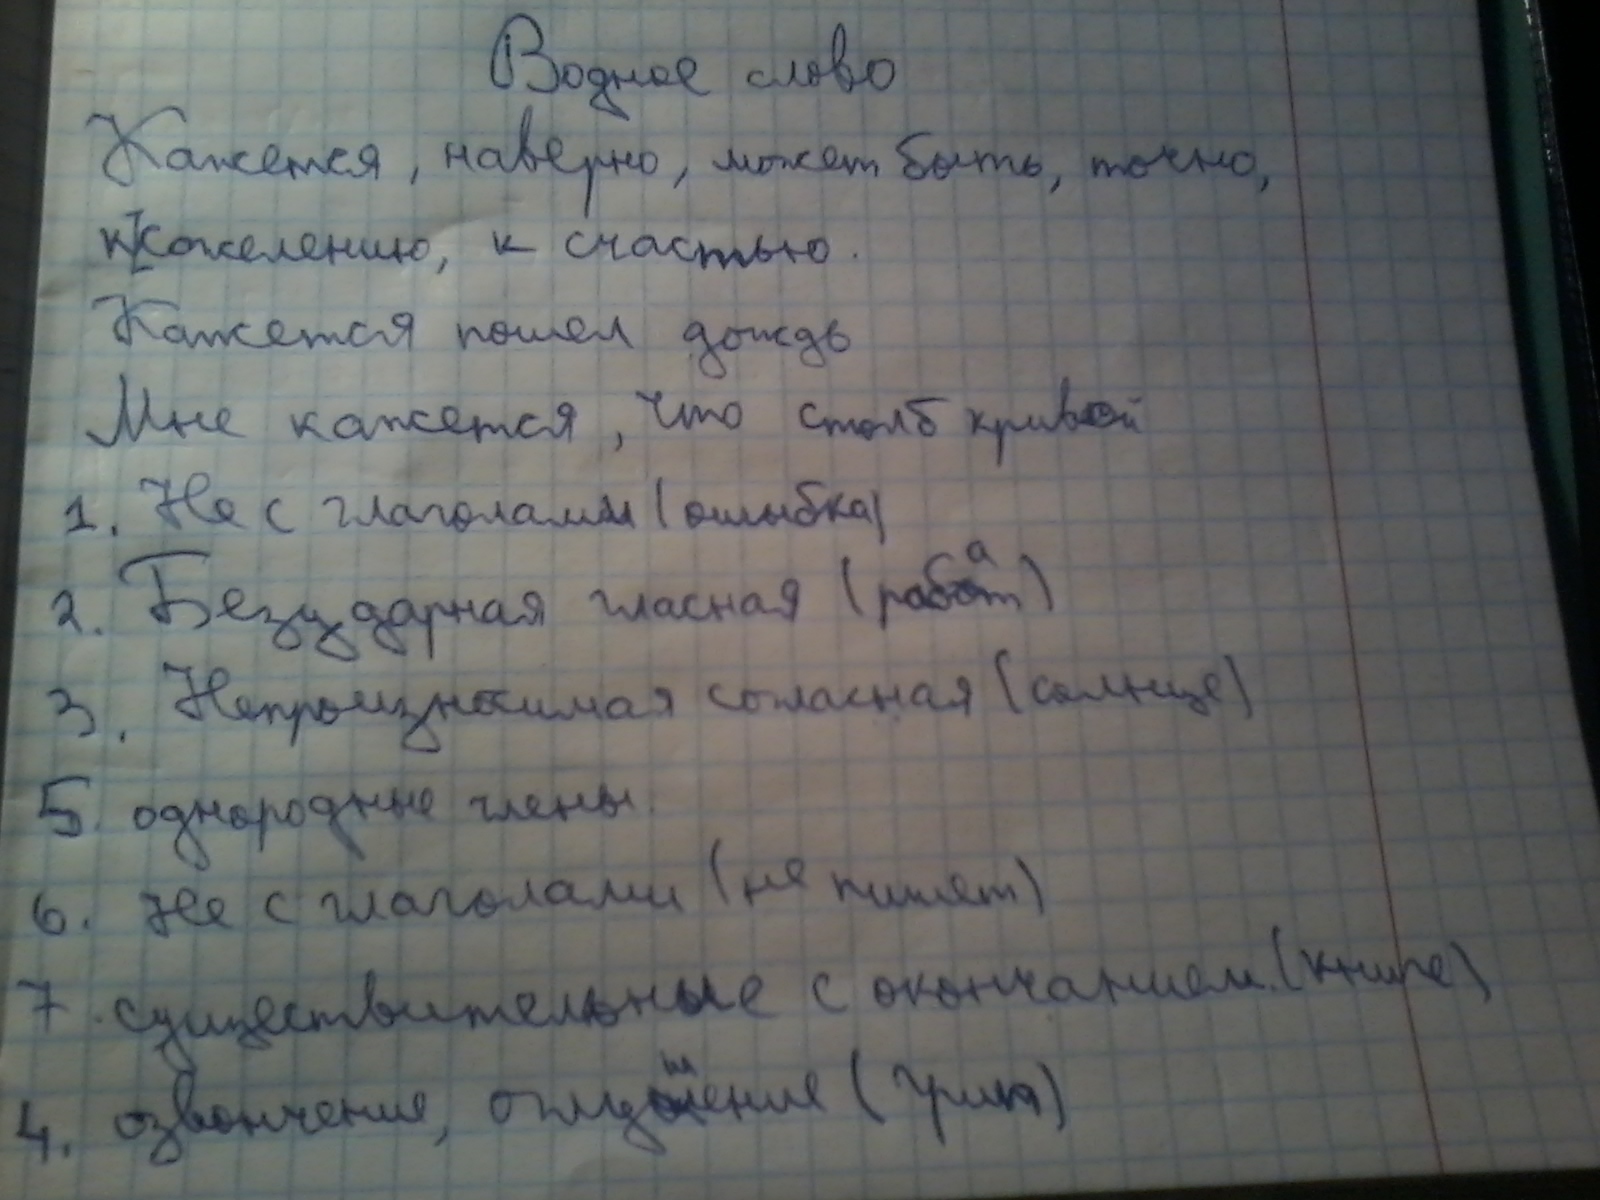 Водное слово
Кажется, наверно, может быть, точно,
к сожелению, к счастью.
Кажется пошел дождь
Мне кажется, что столб кривой
1. Не с глаголами (ошыбка)
2. Безударная гласная (работа)
3. Непроизносимая согласная (солнце)
5. однородные члены.
6. Не с глаголами (не пишет)
7. существительные с окончанием. (книге)
4. озвончение, оглушение